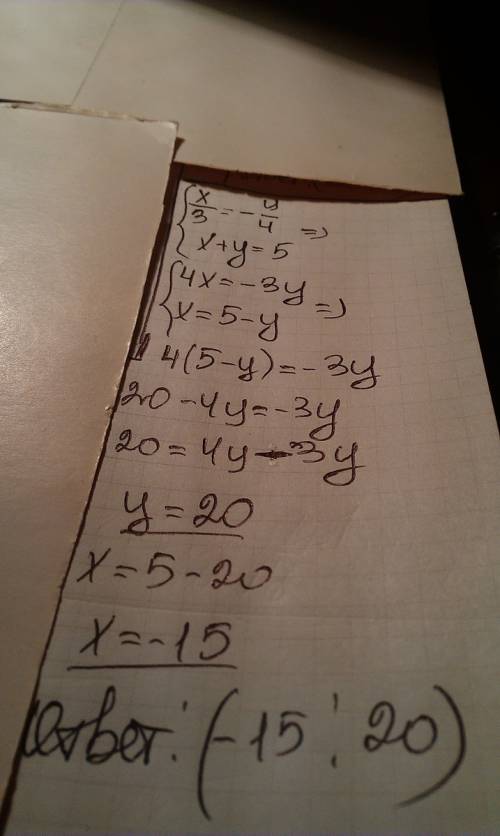 { x/3 = - y/4 =>
x + y = 5
{ 4x = -3y =>
x = 5 - y
4(5-y) = -3y
20 - 4y = -3y
20 = 4y - 3y
y = 20
x = 5 - 20
x = -15
Ответ: (-15; 20)